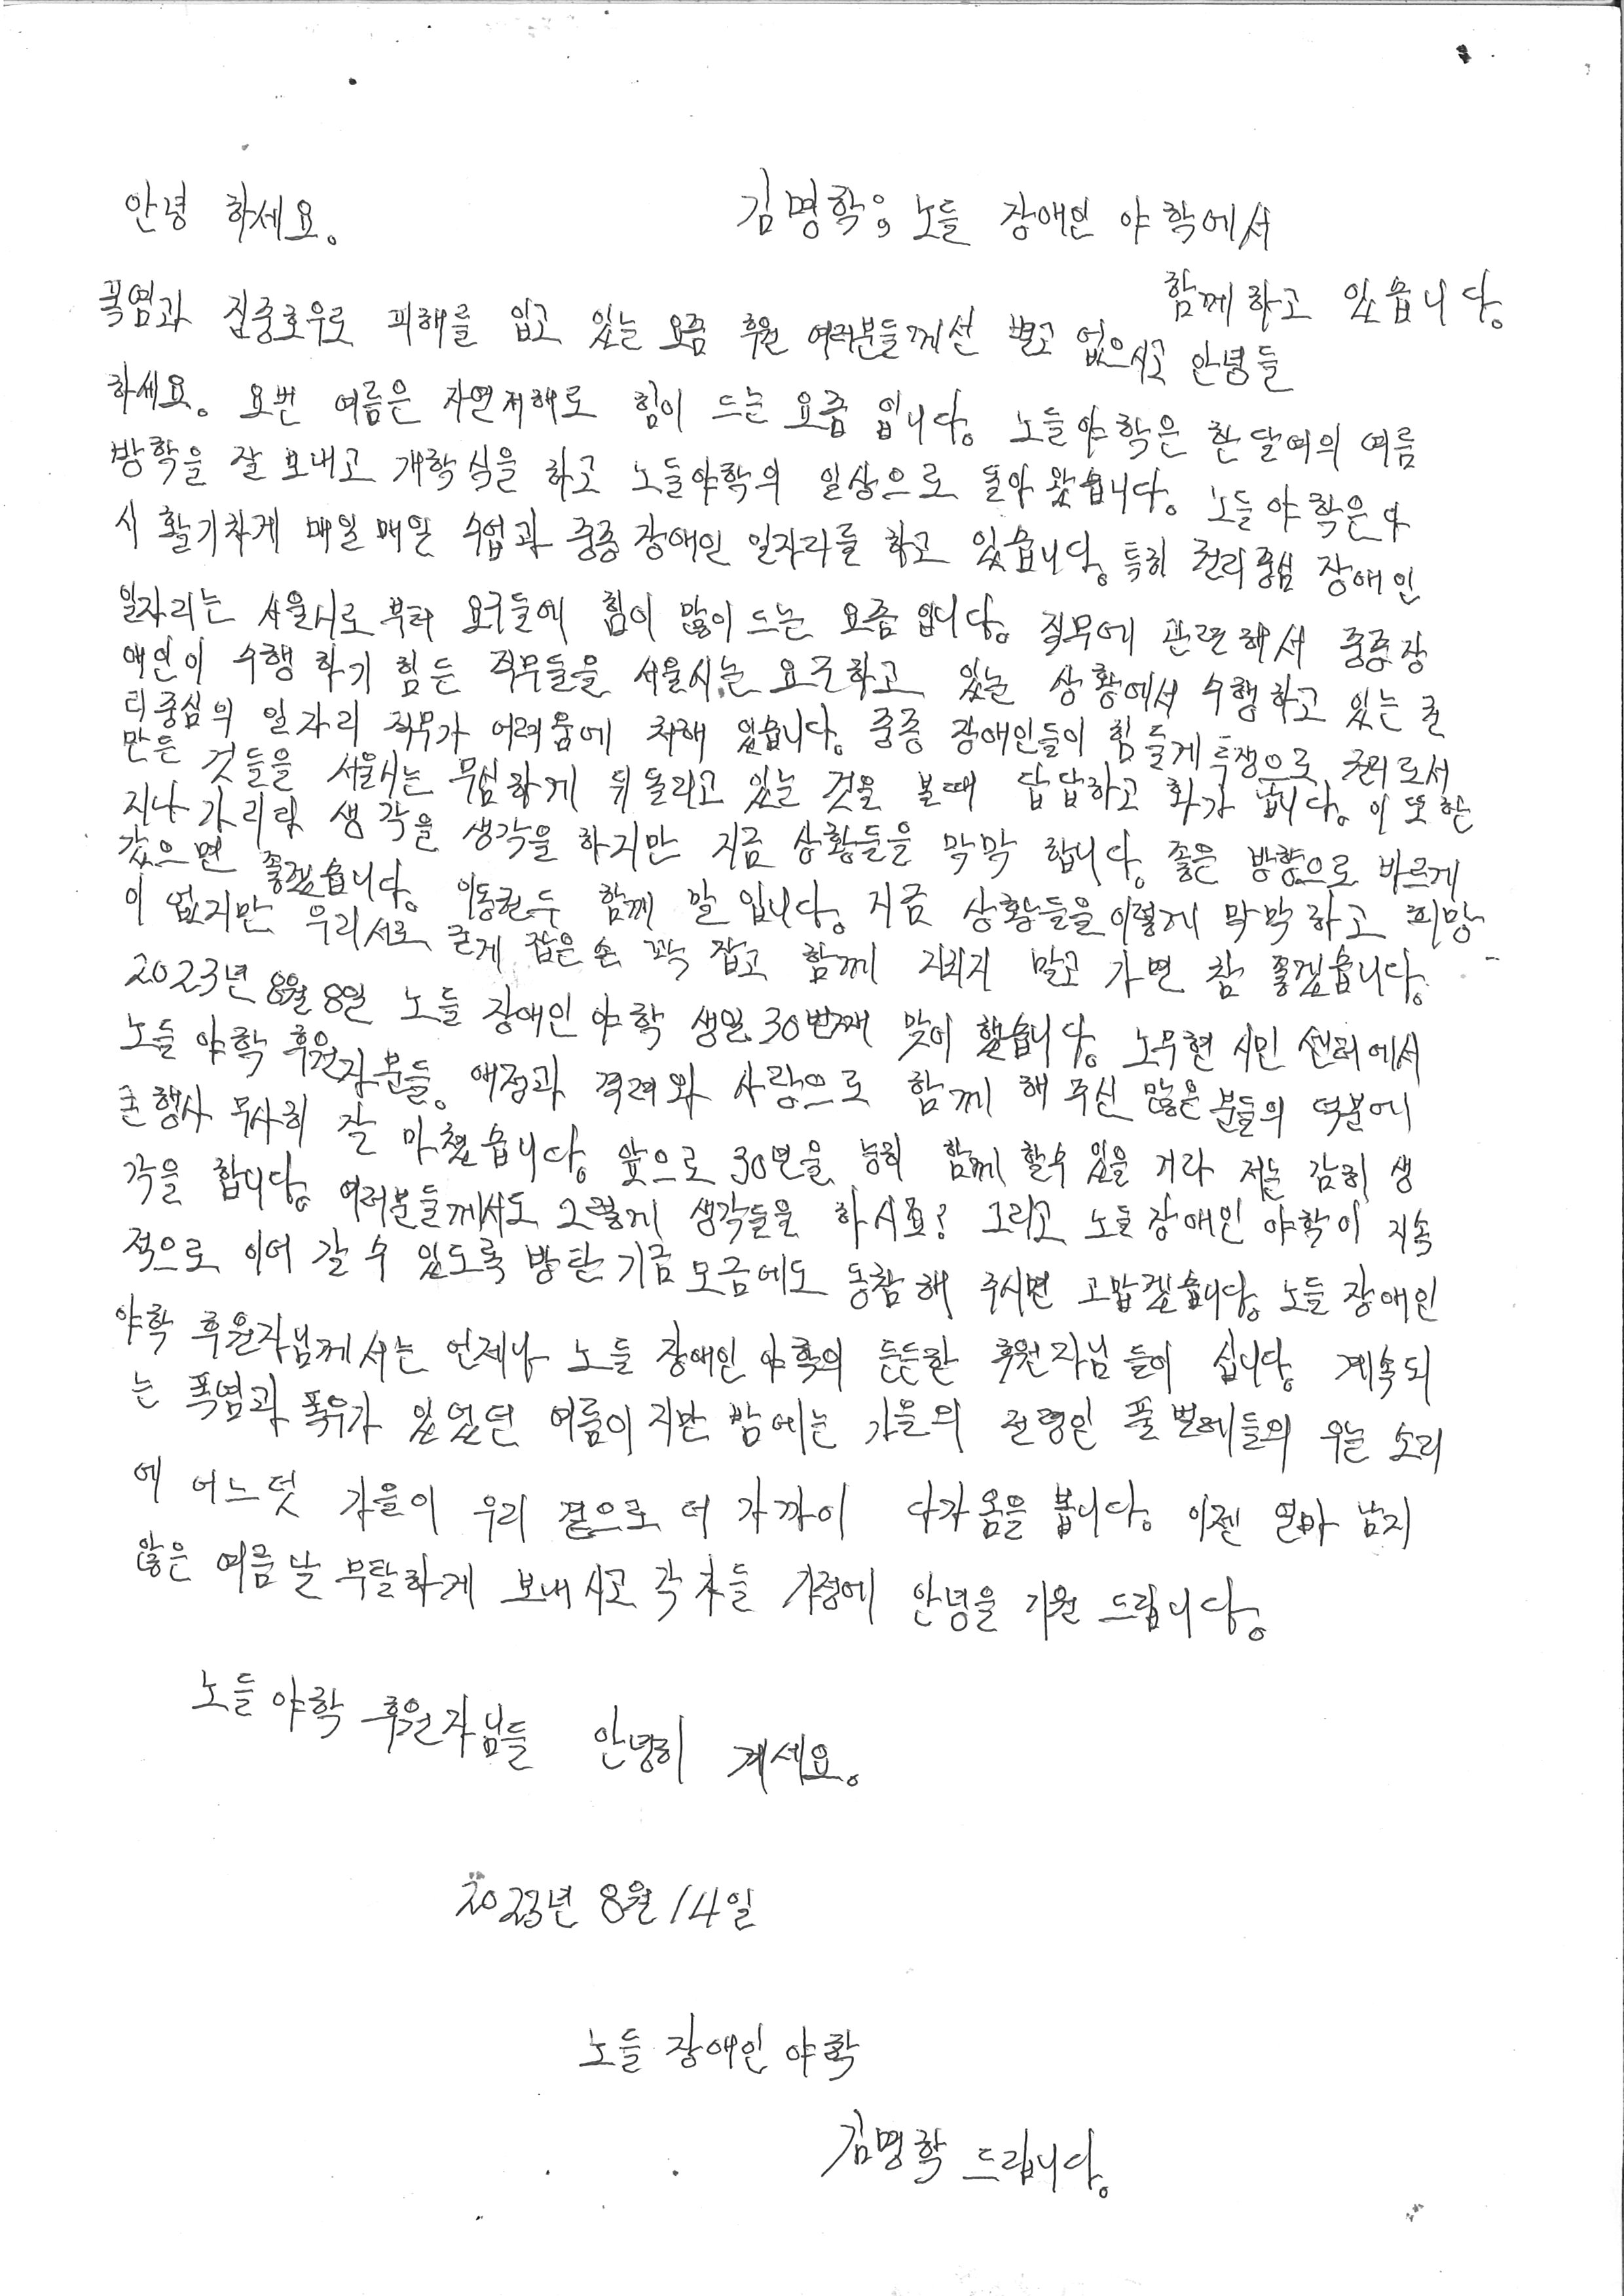 안녕 하세요.
김명학은 노들 장애인 야학에서
함께 하고 있습니다.
폭염과 집중호우로 피해를 입고 있는 요즘 후원 여러분들께선 별고 없으시고 안녕들
하세요. 요번 여름은 자연재해로 힘이 드는 요즘 입니다. 노들야학은 한달여의 여름
방학을 잘 보내고 개학식을 하고 노들야학의 일상으로 돌아 왔습니다. 노들야학은 다
시 활기차게 매일 매일 수업과 중증 장애인 일자리를 하고 있습니다. 특히 권리중심 장애인
일자리는 서울시로 부터 요구들에 힘이 많이 드는 요즘 입니다. 직무에 관련해서 중증장
애인이 수행 하기 힘든 직무들을 서울시는 요구하고 있는 상황에서 수행하고 있는 권
리중심의 일자리 직무가 어려움에 처해 있습니다. 중증 장애인들이 힘들게 투쟁으로 권리로서
만든 것들을 서울시는 무심하게 뒤돌리고 있는 것을 볼때 답답하고 화가 납니다. 이 또한
지나가리란 생각을 생각을 하지만 지금 상황들을 막막 합니다. 좋은 방향으로 바르게
갔으면 좋겠습니다. 함께 말입니다. 지금 상황들을 이렇게 막막하고 희망
이 없지만 우리서로 굳게 잡은 손 꽉 잡고 함께 지치지 말고 가면 참 좋겠습니다.
2023년 8월 8일 노들 장애인 야학 생일 30번째 맞이 했습니다. 노무현 시민 센터에서
노들 야학 후원자분들. 애정과 격려와 사랑으로 함께 해 주신 많은 분들의 덕분에
행사 무사히 잘 마쳤습니다. 앞으로 30년을 능히 함께 할수 있을 거라 저는 감히 생
각을 합니다. 여러분들께서도 그렇게 생각들을 하시죠? 그리고 노들 장애인 야학이 지속
적으로 이어 갈 수 있도록 방탄 기금 모금에도 동참해 주시면 고맙겠습니다. 노들 장애인
야학 후원자님께서는 언제나 노들 장애인 야학의 든든한 후원자님 들이 십니다. 계속되
는 폭염과 폭우가 있었던 여름이지만 밤에는 가을의 전령인 풀벌레들의 우는 소리
에 어느덧 가을이 우리 곁으로 더 가까이 다가 옴을 봅니다. 이젠 얼마 남지
않은 여름날 무탈하게 보내시고 각 자들 가정에 안녕을 기원 드립니다.
노들야학 후원자님들 안녕히 계세요.
2023년 8월 14일
노들 장애인 야학
김명학 드립니다.